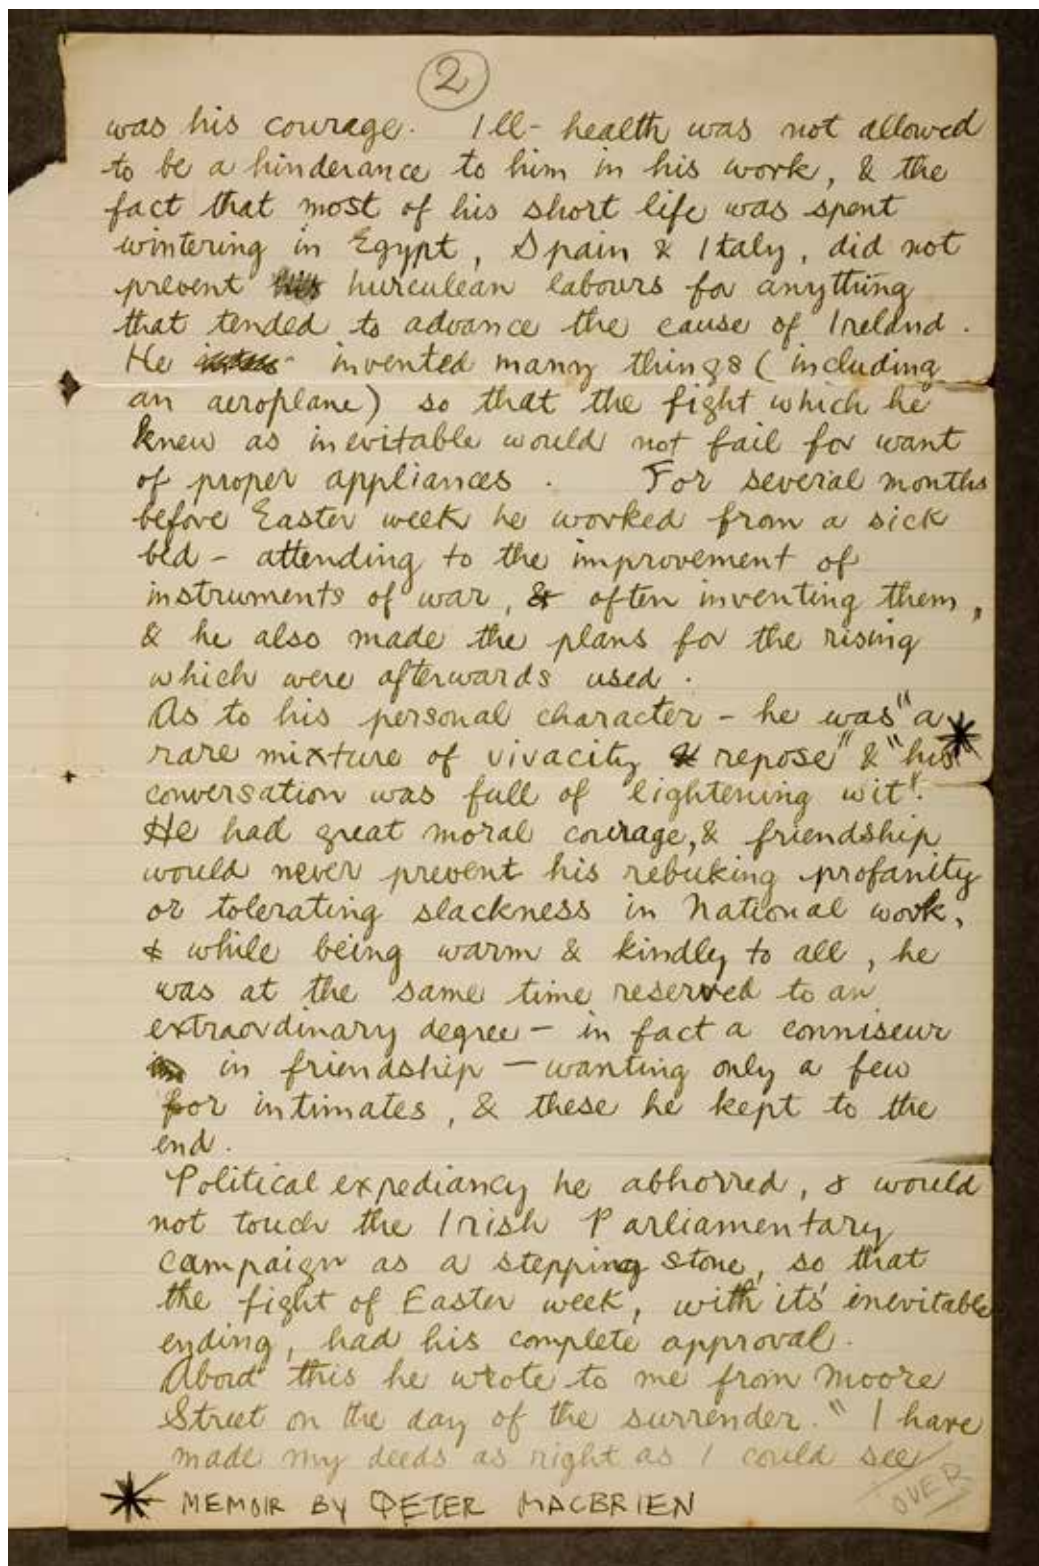 2
was his courage. Ill-health was not allowed
to be a hinderance to him in his work, & the
fact that most of his short life was spent
wintering in Egypt, Spain & Italy, did not
prevent his hurculean labours for anything
that tended to advance the cause of Ireland.
He invented many things (including
an aeroplane) so that the fight which he
knew as inevitable would not fail for want
of proper appliances. For several months
before Easter week he worked from a sick
bed - attending to the improvement of
instruments of war, & often inventing them,
& he also made the plans for the rising
which were afterwards used.
As to his personal character - he was "a *
rare mixture of vivacity & repose" & "his
conversation was full of lightening wit".
He had great moral courage, & friendship
would never prevent his rebuking profanity
or tolerating slackness in National work,
& while being warm & kindly to all, he
was at the same time reserved to an
extraordinary degree - in fact a conniseur
in friendship - wanting only a few
for intimates, & these he kept to the
end.
Political expediancy he abhorred, & would
not touch the Irish Parliamentary
campaign as a stepping stone, so that
the fight of Easter week, with its' inevitable
ending, had his complete approval.
About this he wrote to me from Moore
Street on the day of the surrender. "I have
made my deeds as right as I could see
OVER
* MEMOIR BY PETER MACBRIEN